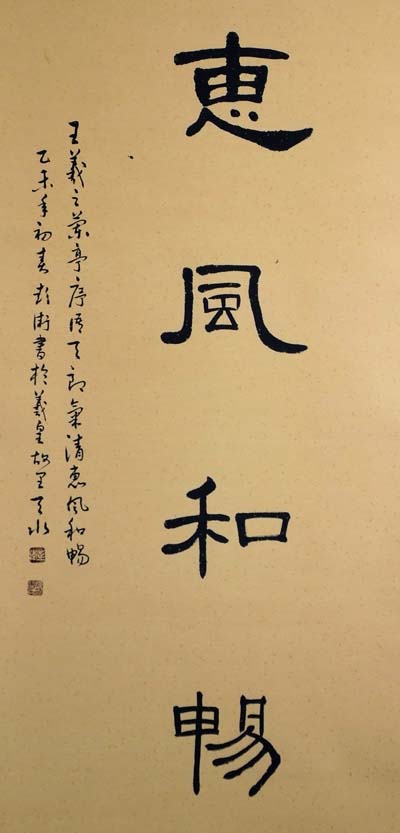 惠風和暢
王羲之蘭亭序語天朗氣清惠風和暢
乙未年初春彭衛書於羲皇故里天水